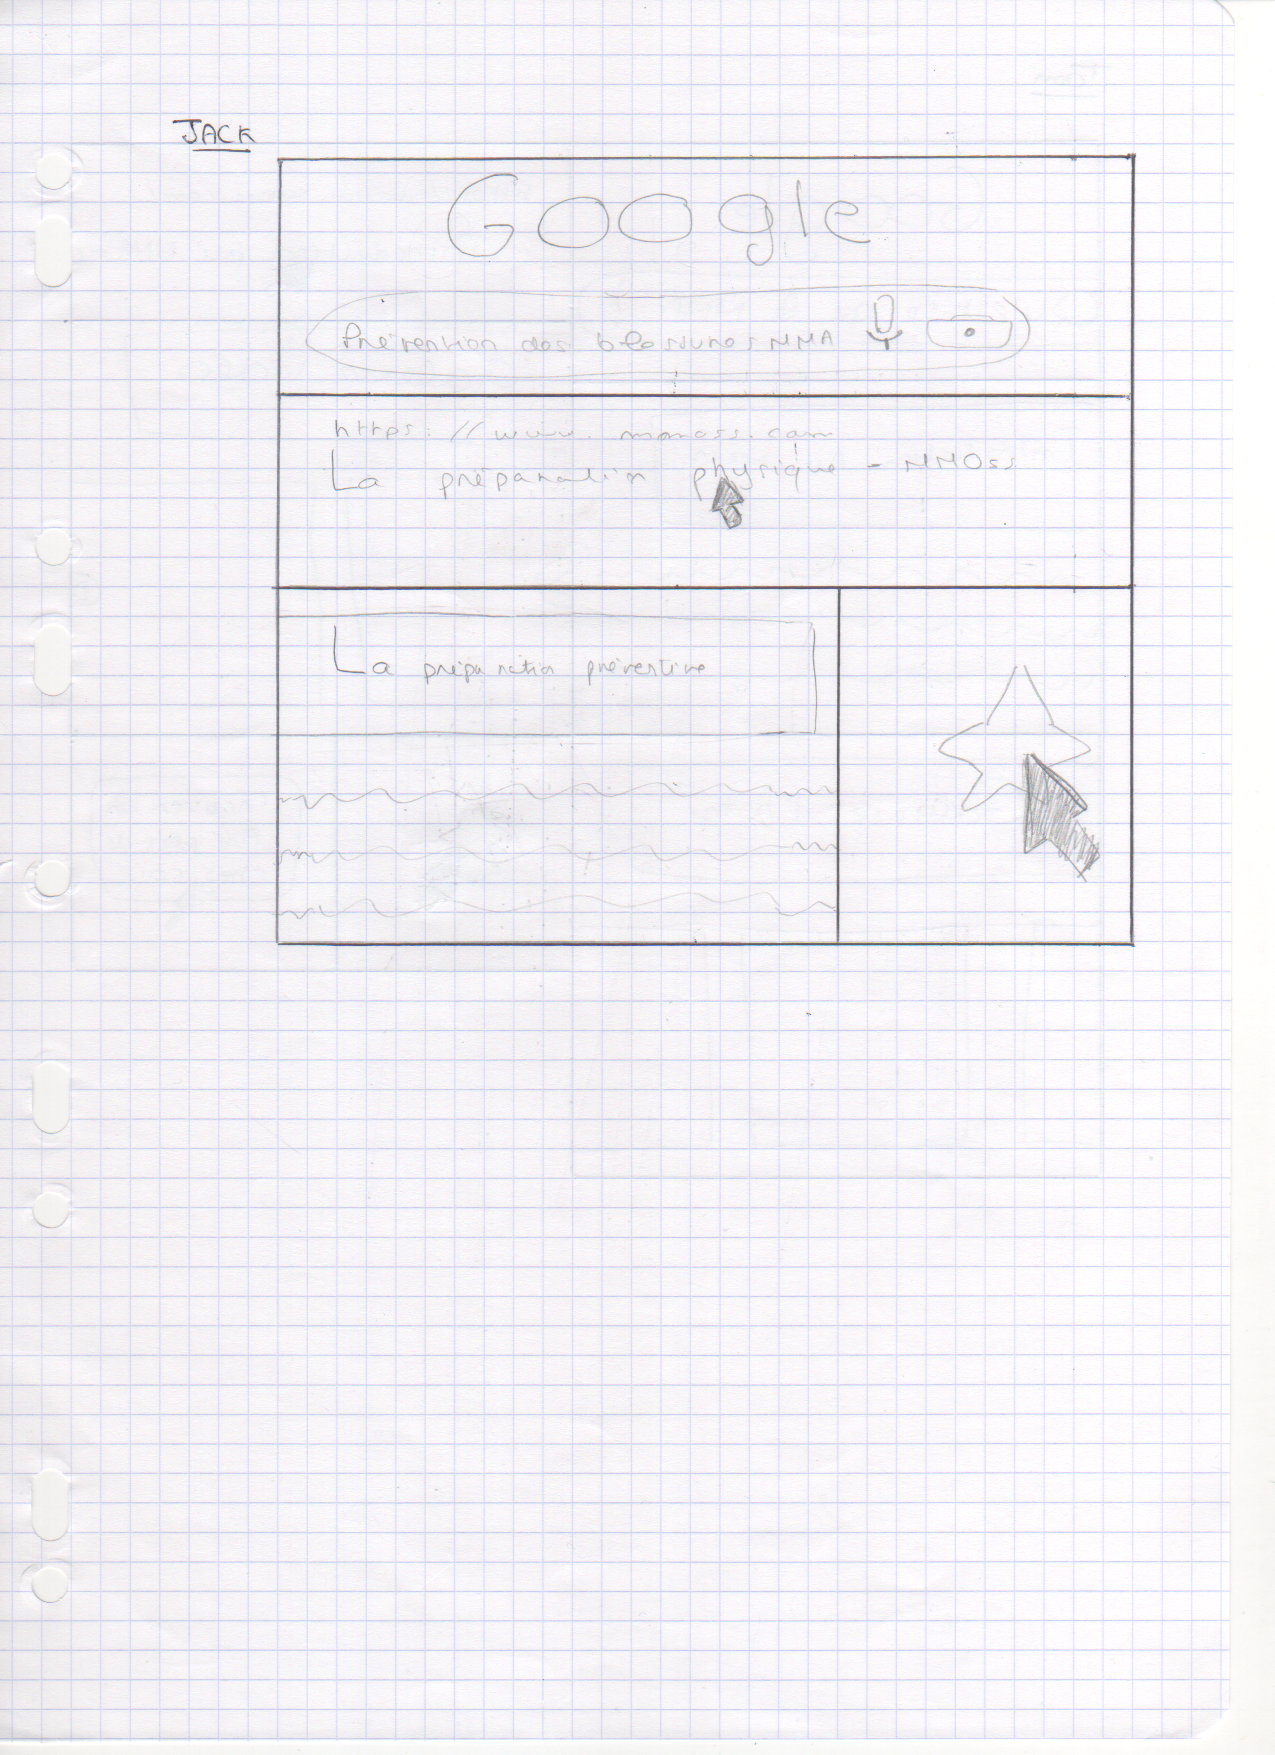 JACK
Google
Prévention des blessures MMA
https://www.mmoss.com
La préparation physique - MMOss
La préparation préventive